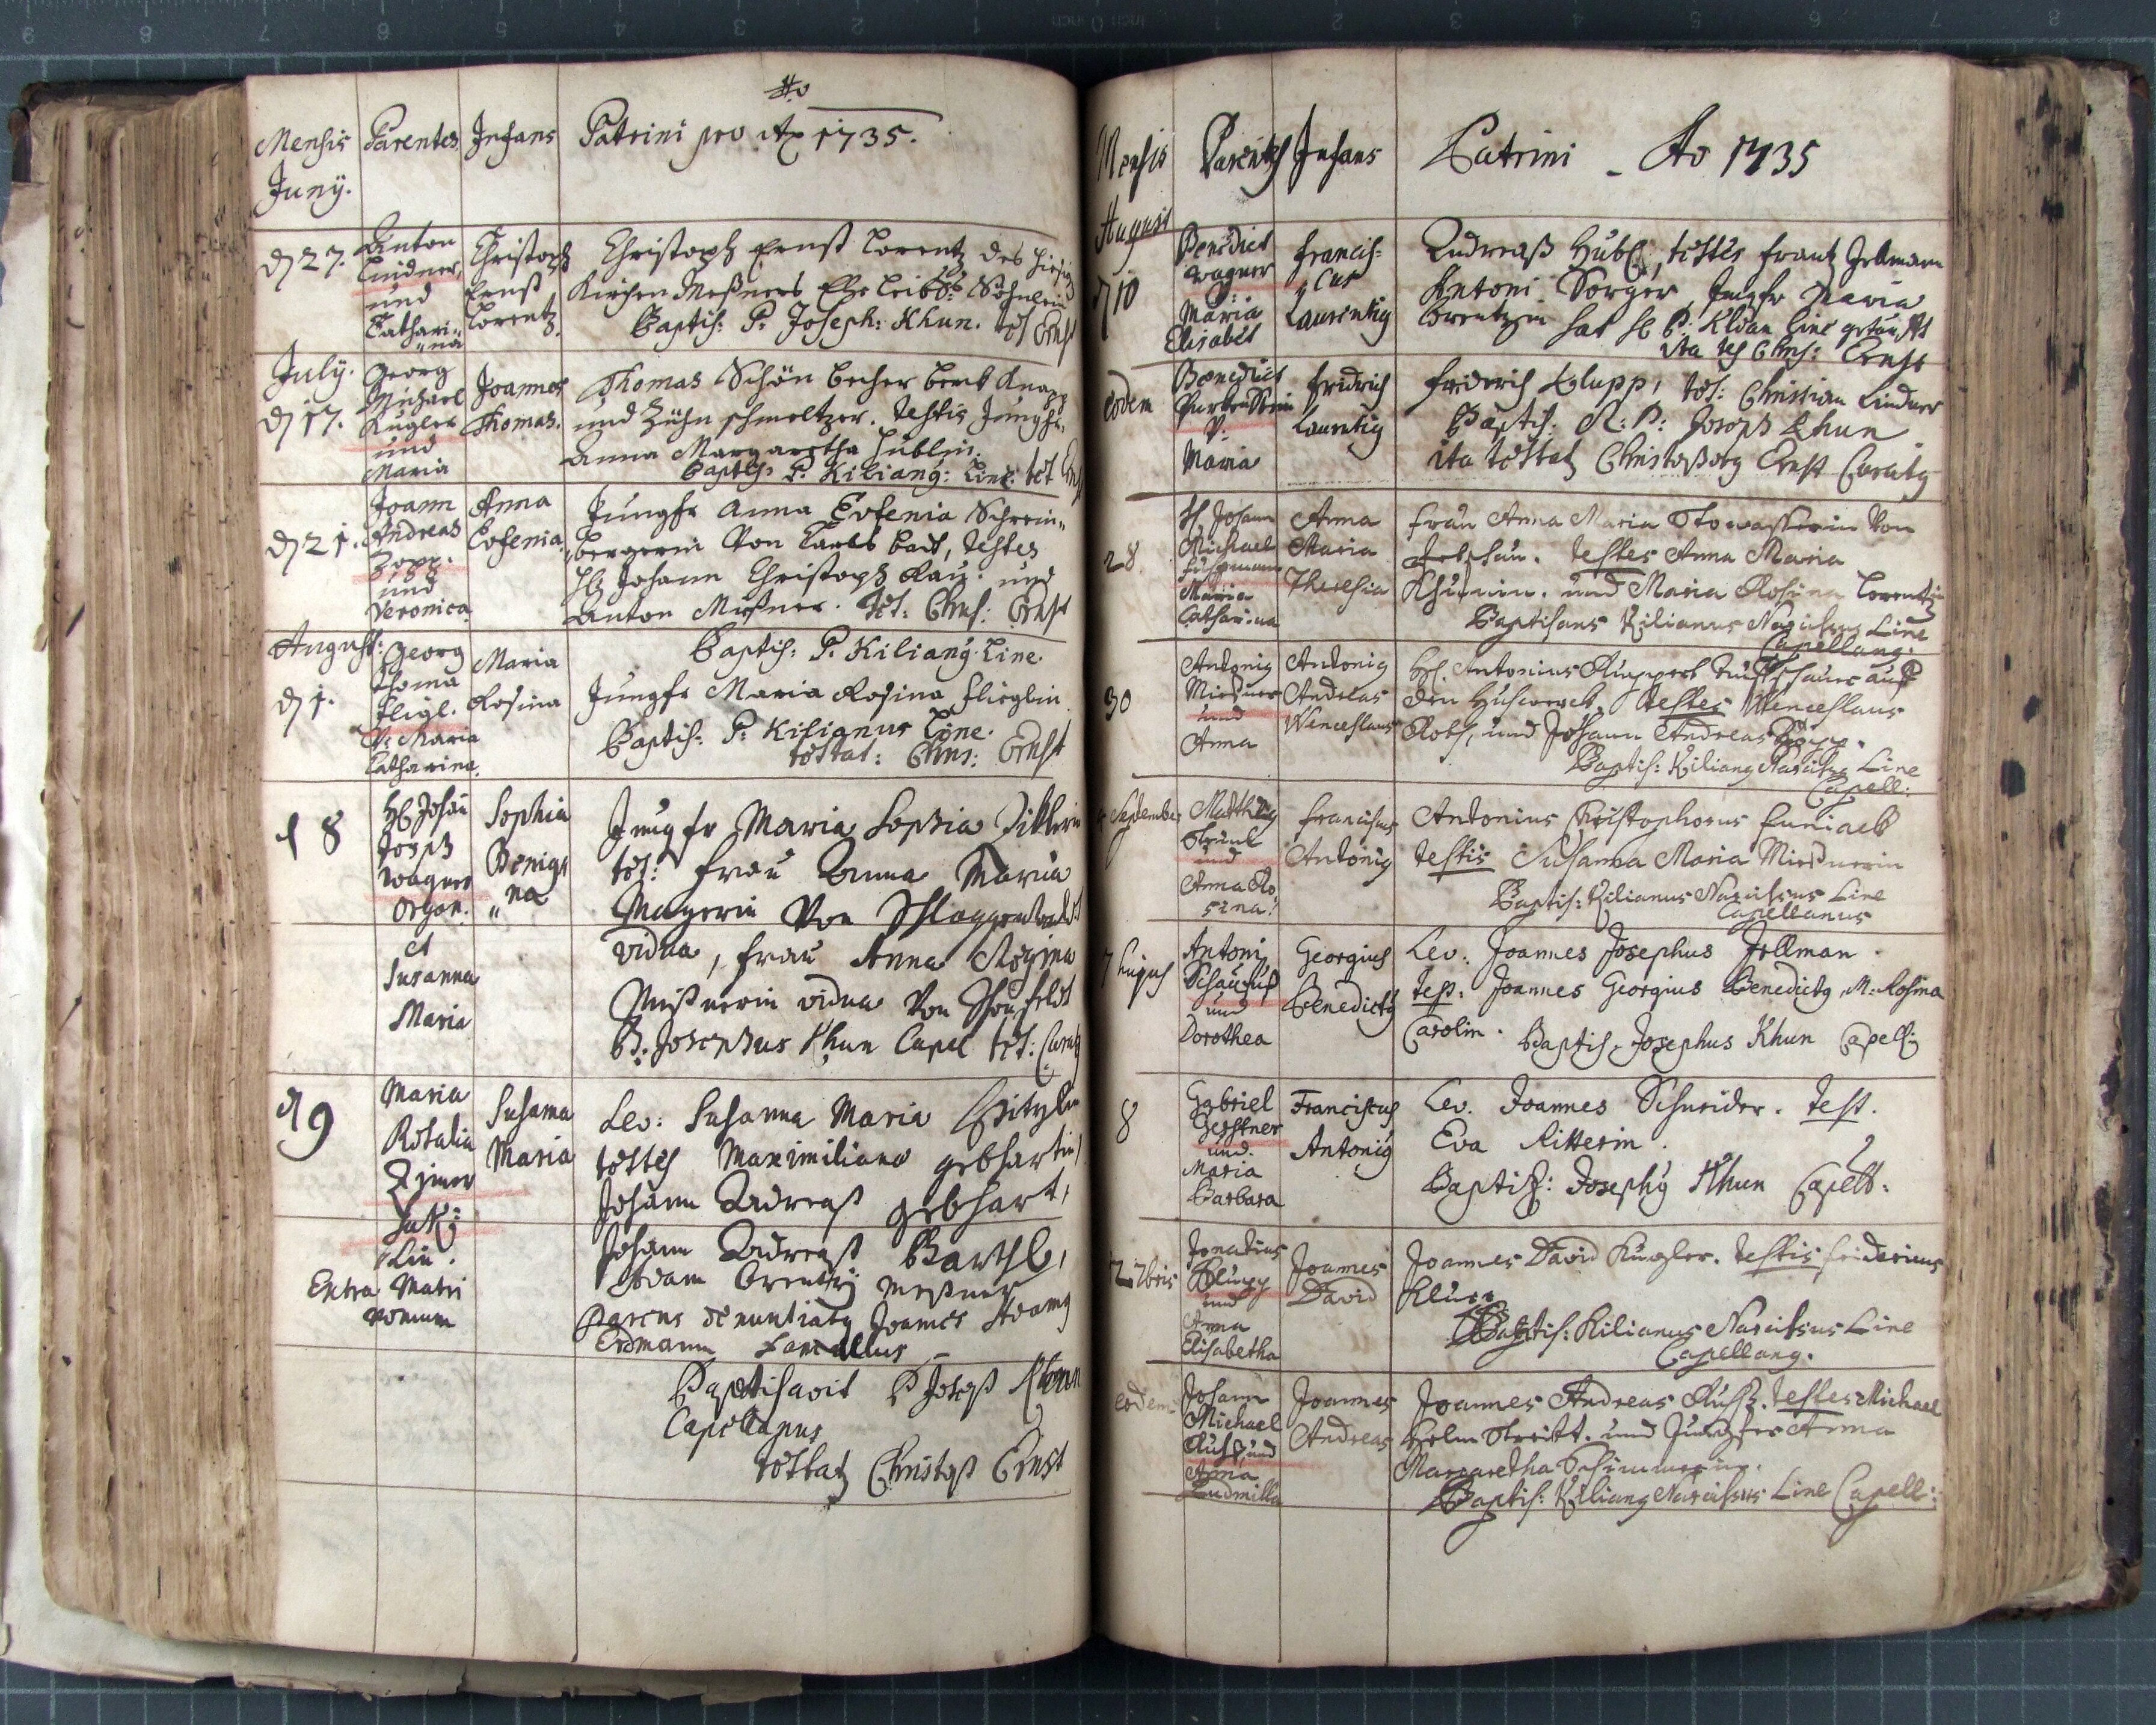 Mensis Parentes Infans Patrini pro Ao 1735.
Juny.
d 27. Anton
Lindner,
und
Cathari-
na
Christoph
Ernst
Lorentz.
Christoph Ernst Lorentz des
Kirchen Meßners Söhnlein
Baptis: P. Joseph: Khun. tēt Ernst
July.
d 17.
Georg
Michael
Kugler
und
Maria
Joannes
Thomas.
Thomas Schön
und Zühn schmeltzer. testis
Anna Margaretha Hüblin.
Baptis: P. Kiliang: Line: tet
d 21.
Joann
Andreas
und
Veronica
Anna
Eufenia
Jungfr Anna Eufenia Schrein-
bergerin Von Carls badt, testes
Johann Christoph und
Anton Meßner. Tēt: Chris: Ernst
August:
d 1.
Georg
Thoma
fligl.
Maria
Catharina.
Maria
Rosina
Baptis: P. Kiliang. Line.
Jungfr Maria Rosina flieglin
Baptis: P. Kilianus Line.
testat: Chris: Ernst
d 8
Johan
Joseph
Wagner
Organ.
et
Susanna
Maria
Sophia
Benig
na
Jungfr Maria Sophia
tēt: frau Anna Maria
Mayerin Von
vidua, frau Anna Regina
Meßnerin vidua Von
P. Josephus Khun Capel tēt:
d 9
Maria
Rosalia
Zimer
Lin.
Extra Matri
monium
Susanna
Maria
Lev: Susanna Maria
testes Maximiliana gebhartin
Johann Andreaß gebhart,
Johann Andreaß Barthl,
Adam Meßner
denuntiatg Joannes Adamg
Erdmann
Baptisavit P Joseph Khun
Capellanus
testatg Christoph Ernst
Mensis Parentes Infans Patrini - Ao 1735
August
d 10
Benedict
wagner
Maria
Elisabet
francis-
cus
Laurentig
Andreaß Hübl, testes frantz Hellmann
Antoni Sorger, Jungfr Maria
hat P: Line getaufft
ita tes Chris: Ernst
eodem
Benedict
V:
Maria
fridrich
Laurentig
friderich Klupp, tēt: Christian Lindner
Baptis. R: P: Joseph Khun
ita testatg Christophorg Ernst Curatg
28
H. Johann
Michael
Maria
Catharina
Anna
Maria
Theresia
frau Anna Maria Stowasserin Von
testes Anna Maria
und Maria Rosina Lorentzin
Baptisans Kilianus Narcissus Line
Capellang.
30
Antonig
Mießner
und
Anna
Antonig
Andreas
Wenceslaus
H. Antonius Ruppert
testes Wenceslaus
und Johann Andreas
Baptis: Kiliang Narcissus Line
Capell:
September
Matthäg
und
Anna Ro
sina:
Franciscus
Antonig
Antonius Christophorus
testis Susanna Maria Mießnerin
Baptis: Kilianus Narcissus Line
Capellanus
7 hujus
Antonj
und
Dorothea
Georgius
Benedictg
Lev: Joannes Josephus Hellman.
test: Joannes Georgius Benedictg, M: Rosina
Carolin. Baptis. Josephus Khun Capell:
8
Gabriel
Gerstner
und
Maria
Barbara
Franciscus
Antonig
Lev. Joannes Schneider. test.
Eva Ritterin.
Baptiz: Josephg Khun Capell:
7bris
Ignatius
Klupp
und
Anna
Elisabetha
Joannes
David
Joannes David Kugler. testis fridericus
Klupp
Baptis: Kilianus Narcissus Line
Capellang.
eodem
Johann
Michael
und
Anna
Ludmilla
Joannes
Andreas
Joannes Andreas testes Michael
und Jungfer Anna
Margaretha
Baptis: Kiliang Narcissus Line Capell: